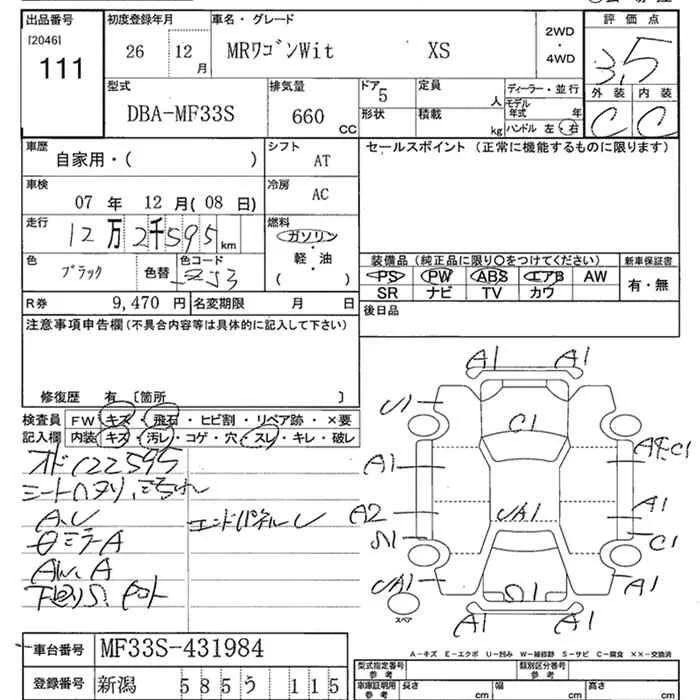 出品番号 初度登録年月 車名・グレード 評価点
[2046]
111
26 12月 MRワゴンWit XS 2WD・4WD 3.5
型式 排気量 ドア 5 定員 人 ディーラー・並行 外装 内装
DBA-MF33S 660 CC 形状 積載 kg モデル年式 年 C C
ハンドル 左・右
車歴 シフト セールスポイント (正常に機能するものに限ります)
自家用・( ) AT
車検 冷房
07 年 12 月(08 日) AC
走行 燃料
12万2千595km ガソリン・軽・油 ( )
色 色コード 装備品(純正品に限り○をつけてください) 新車保証書
ブラック 色替 ZJ3 PS PW ABS エアB AW 有・無
SR ナビ TV カワ
R券 9,470 円 名変期限 月 日 後日品
注意事項申告欄(不具合内容等は具体的に記入して下さい)
修復歴 有 [箇所 ]
検査員 FW キズ・飛石・ヒビ割・リペア跡・×要
記入欄 内装 キズ・汚レ・コゲ・穴・スレ・キレ・破レ
オド122595
A、U エンドパネルU
ミラーA
AW、A
A1 A1
U1 C1
A1
A2 A1
S1 C1
UA1 A1
A1 A1
スペア
A-キズ E-エクボ U-凹み W-補修跡 S-サビ C-腐食 ××-交換済
車台番号 MF33S-431984 型式指定番号 参考 類別区分番号 参考
登録番号 新潟 585 う 115 車庫証明用 参考 長さ cm 幅 cm 高さ cm